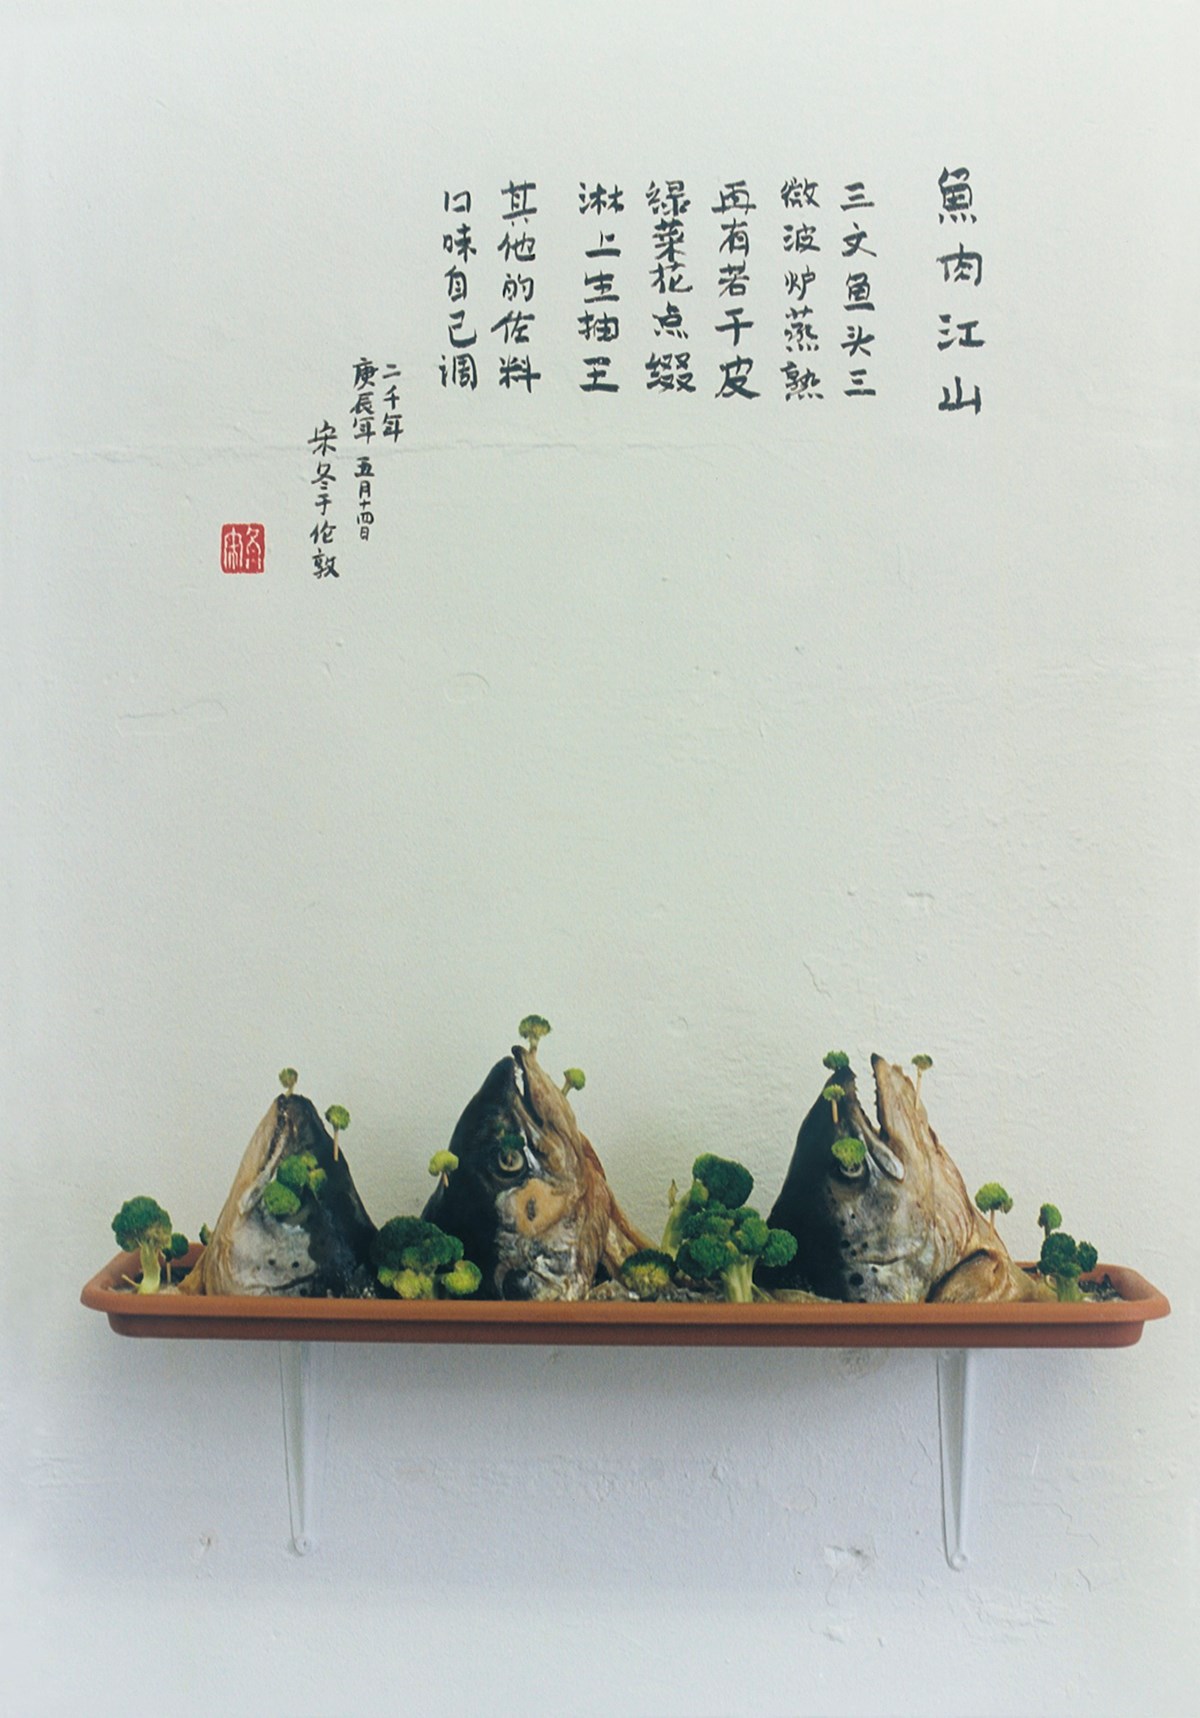 魚肉江山
三文鱼头三
微波炉蒸熟
再有若干皮
绿菜花点缀
淋上生抽王
其他的佐料
口味自己调
二千年
庚辰年 五月十四日
宋冬于伦敦
宋冬